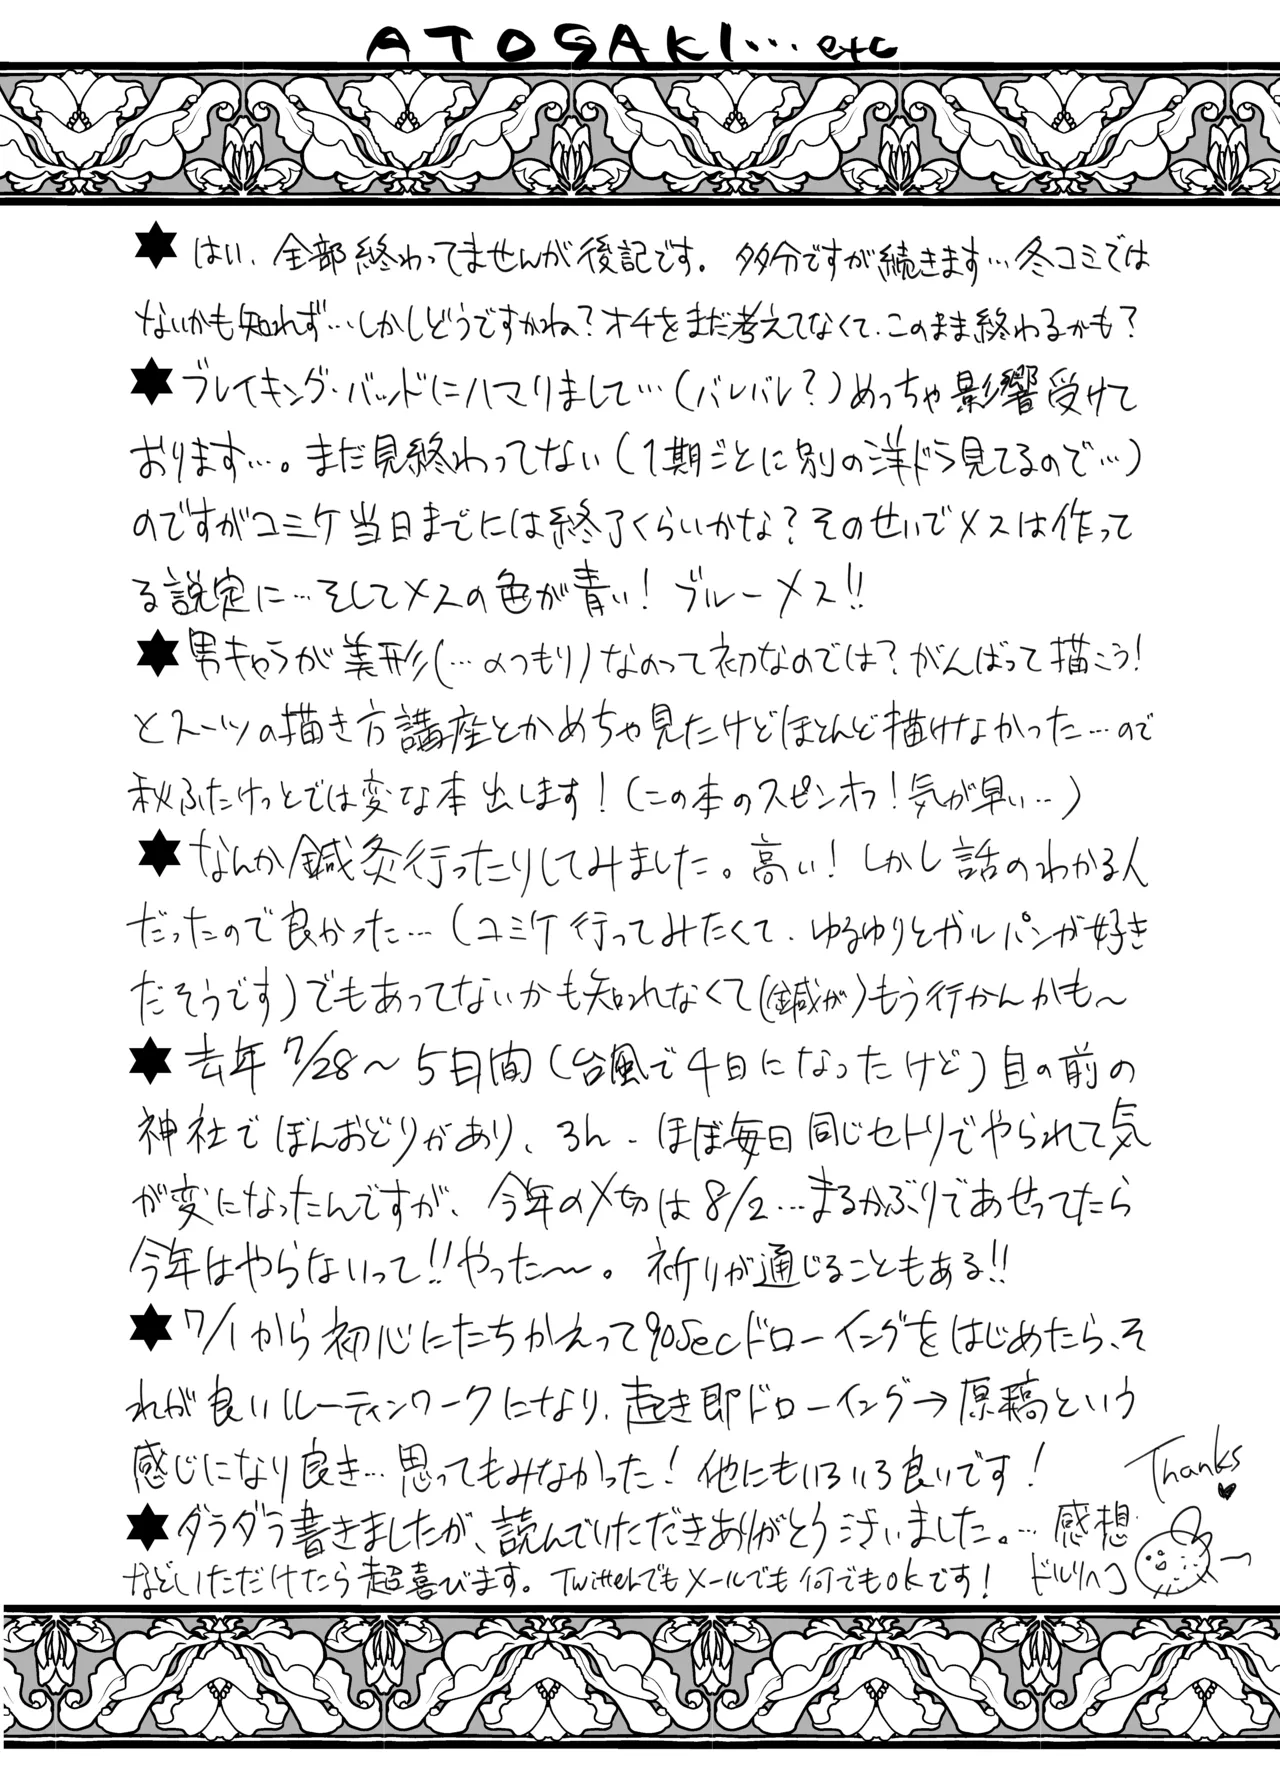 ATOGAKI…etc
★はい、全部終わってませんが後記です。多分ですが続きます…冬コミでは
ないかも知れず…しかしどうですかね？オチをまだ考えてなくて、このまま終わるかも？
★ブレイキング・バッドにハマりまして…（バレバレ？）めっちゃ影響受けて
おります…。まだ見終わってない（1期ごとに別の洋ドラ見てるので…）
のですがコミケ当日までには終了くらいかな？そのせいでメスは作って
る設定に…そしてメスの色が青い！ブルーメス!!
★男キャラが美形（…のつもり）なのって初なのでは？がんばって描こう！
とスーツの描き方講座とかめちゃ見たけどほとんど描けなかった…ので
秋ふたけっとでは変な本出します！（この本のスピンオフ！気が早い…）
★なんか鍼灸行ったりしてみました。高い！しかし話のわかる人
だったので良かった…（コミケ行ってみたくて、ゆるゆりとガルパンが好き
だそうです）でもあってないかも知れなくて（鍼が）もう行かんかも〜
★去年7/28〜5日間（台風で4日になったけど）目の前の
神社でぼんおどりがあり、ろん、ほぼ毎日同じセトリでやられて気
が変になったんですが、今年の〆切は8/2…まるかぶりであせってたら
今年はやらないって!!やった〜。祈りが通じることもある!!
★7/1から初心にたちかえって90secドローイングをはじめたら、そ
れが良いルーティンワークになり、起き即ドローイング→原稿という
感じになり良き…思ってもみなかった！他にもいろいろ良いです！
★ダラダラ書きましたが、読んでいただきありがとうございました。…感想
などいただけたら超喜びます。Twitterでもメールでも何でもOKです！
ドルリヘコ
Thanks♥